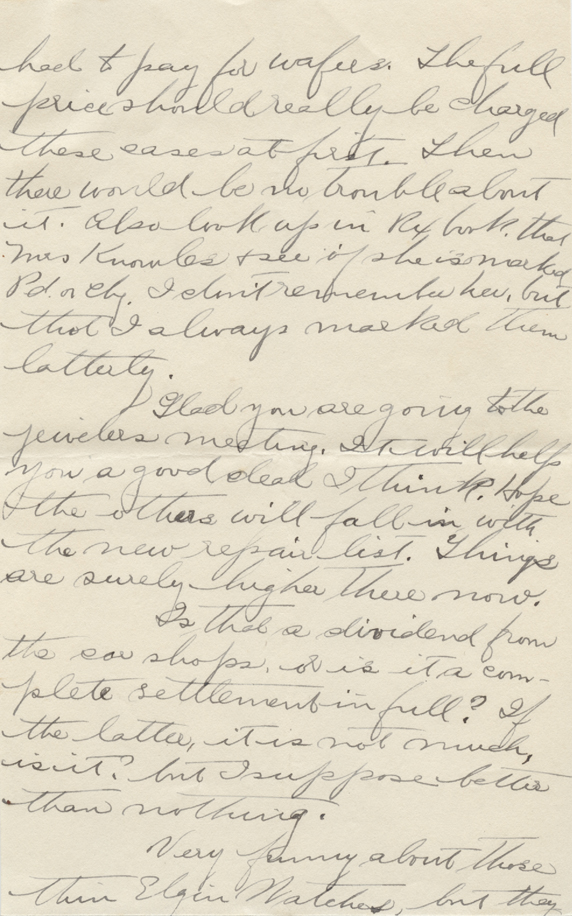 had to pay for wafers. The full
price should really be charged
these cases at first. Then
there would be no trouble about
it. Also look up in Rx book that
Mrs Knowles & see if she is marked
Pd. or Chg. I don't remember her, but
that I always marked them
latterly.
Glad you are going to the
jewelers meeting. It will help
you a good deal I think. Hope
the others will fall in with
the new repair list. Things
are surely higher there now.
Is that a dividend from
the car shops, or is it a com-
plete settlement in full? If
the latter, it is not much,
is it? but I suppose better
than nothing.
Very funny about those
thin Elgin Watches, but they